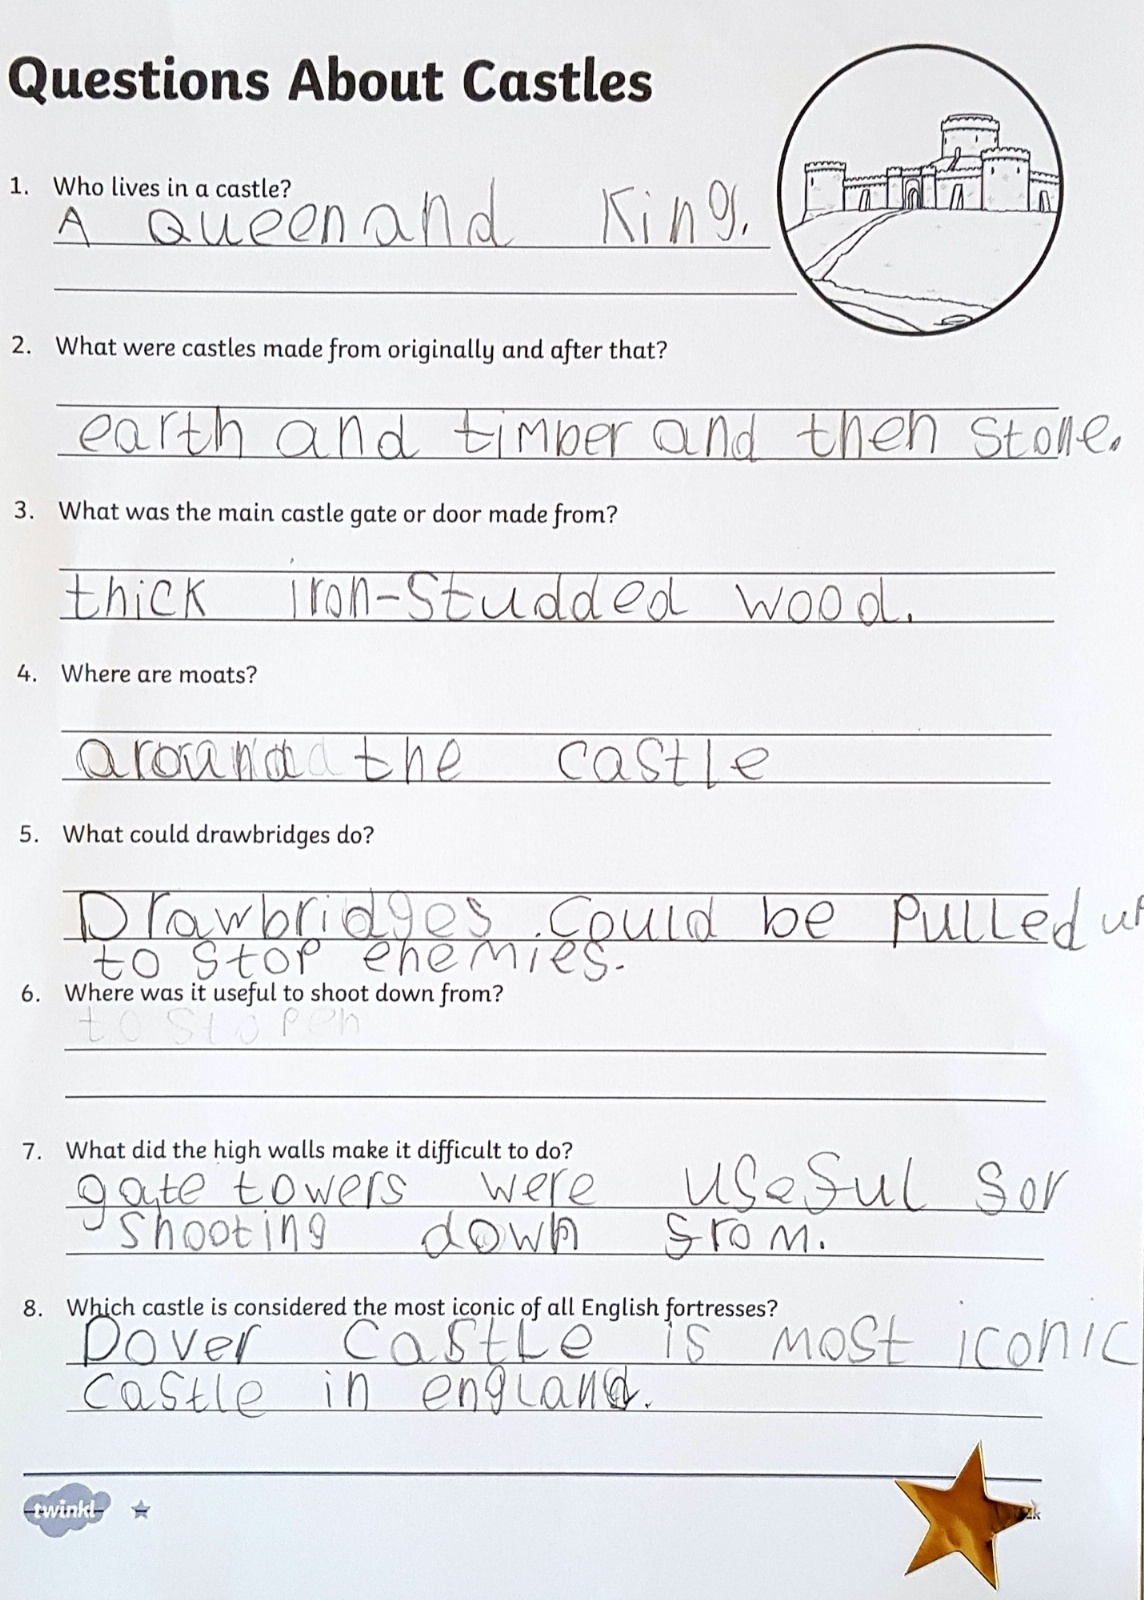 Questions About Castles
1. Who lives in a castle?
A Queen and King.
2. What were castles made from originally and after that?
earth and timber and then stone.
3. What was the main castle gate or door made from?
thick iron-studded wood.
4. Where are moats?
around the castle
5. What could drawbridges do?
Drawbridges could be pulled up
to stop enemies.
6. Where was it useful to shoot down from?
to stop en
7. What did the high walls make it difficult to do?
gate towers were useful sor
shooting down srom.
8. Which castle is considered the most iconic of all English fortresses?
Dover Castle is most iconic
castle in england.
twinkl